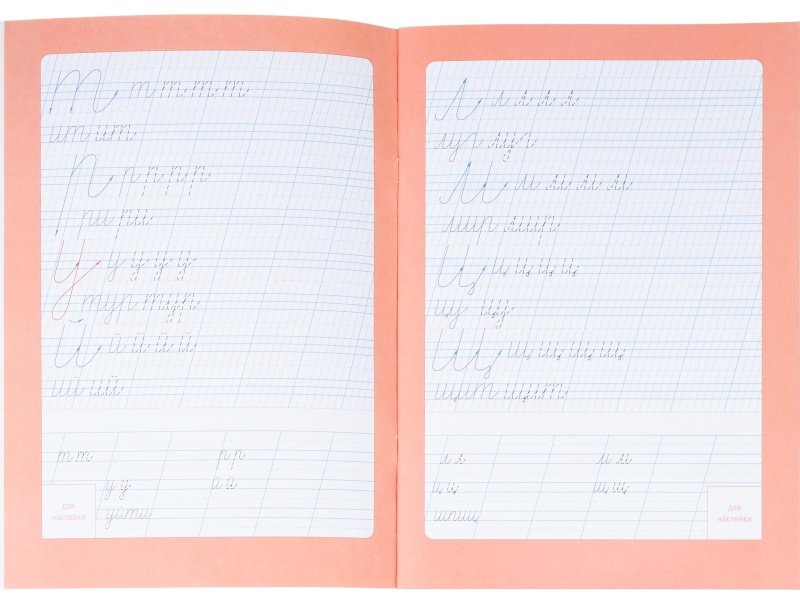 т т т т т
ит ит
р р р р р
ри ри
у у у у у
тур тур
й й й й й
ий ий
т т р р
у у й й
уйти
для
наклейки
л л л л л
м м м м м
мир мир
ц ц ц ц ц
цу цу
щ щ щ щ щ
щит щит
л л м м
ц ц щ щ
для
наклейки